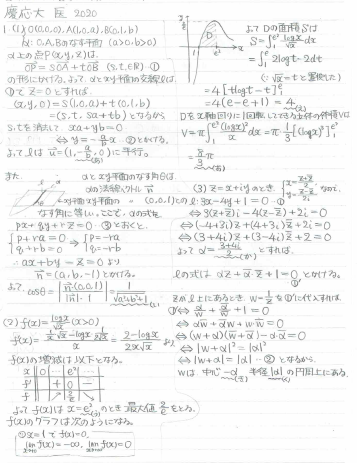 慶応大 医 2020
1. (1) O(0,0,0), A(1,0,a), B(0,1,b)
α: O,A,Bのなす平面 (a>0, b>0)
α上の点P(x,y,z)は、
OP = sOA + tOB (s,t∈R) …①
の形にかける。よって αとxy平面の交線lは、
①で z=0とすれば、
(x,y,0) = s(1,0,a) + t(0,1,b)
= (s, t, sa+tb) となるから、
s,tを消去して xa+yb=0
⇔ y=-a/b x …②とかける。
よって lは u=(1, -a/b, 0) に平行。
また αとxy平面のなす角θは、
αの法線ベクトル n
とxy平面の 〃 (0,0,1)との
なす角に等しい。ここで、αの式を
px+qy+rz=0 …③とおくと、
{p+ra=0 {q+rb=0 ⇔ {p=-ra {q=-rb
∴ ax+by-z=0 より
n=(a,b,-1)とかける。
よって cosθ = |n・(0,0,1)| / |n|・1 = 1/√(a²+b²+1)
(2) f(x) = logx/√x (x>0)
f'(x) = (1/x √x - logx・1/2√x)/x = (2-logx)/(2x√x) より
f(x)の増減は以下となる。
x | 0 | … | e² | …
f' | + | 0 | −
f | ↗ | 2/e | ↘
よって f(x)は x=e² のとき 最大値 2/e をとる。
f(x)のグラフは次のようになる。
∵ x=1で f(x)=0、
lim f(x)=-∞, lim f(x)=0
よって Dの面積Sは
S=∫₁^{e²} logx/√x dx
=∫₁^{e} 2logt・2dt
(∵ √x=tと置換した)
=4[tlogt-t]₁^e
=4(e-e+1)=4
Dをx軸回りに1回転してできる立体の体積Vは
V=π∫₁^{e²} (logx)²/x dx = π・1/3[(logx)³]₁^{e²}
= 8/3 π
(3) z=x+iy のとき {x=(z+z̄)/2 {y=(z-z̄)/2i なので、
l: 3x-4y+1=0 …①
⇔ 3(z+z̄)i-4(z-z̄)+2i=0
⇔ (-4+3i)z+(4+3i)z̄+2i=0
⇔ (3+4i)z+(3-4i)z̄+2=0
よって α=(3+4i)/2 とすれば、
lの式は αz+ᾱz̄+1=0 とかける。
zがl上にあるとき w=1/z を①'に代入すれば
①'⇔ α/w + ᾱ/w̄ + 1=0
⇔ αw̄+ᾱw+ww̄=0
⇔ (w+α)(w̄+ᾱ)-αᾱ=0
⇔ |w+α|²=|α|²
⇔ |w+α|=|α| …② となるから、
wは、中心 -α 半径 |α| の円周上にある。